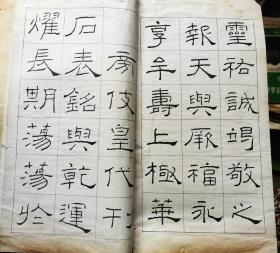 靈祐誠竭敬之
報天與厥福永
享牟壽上極華
旁伎皇代刊
石表銘與乾運
燿長期蕩蕩於